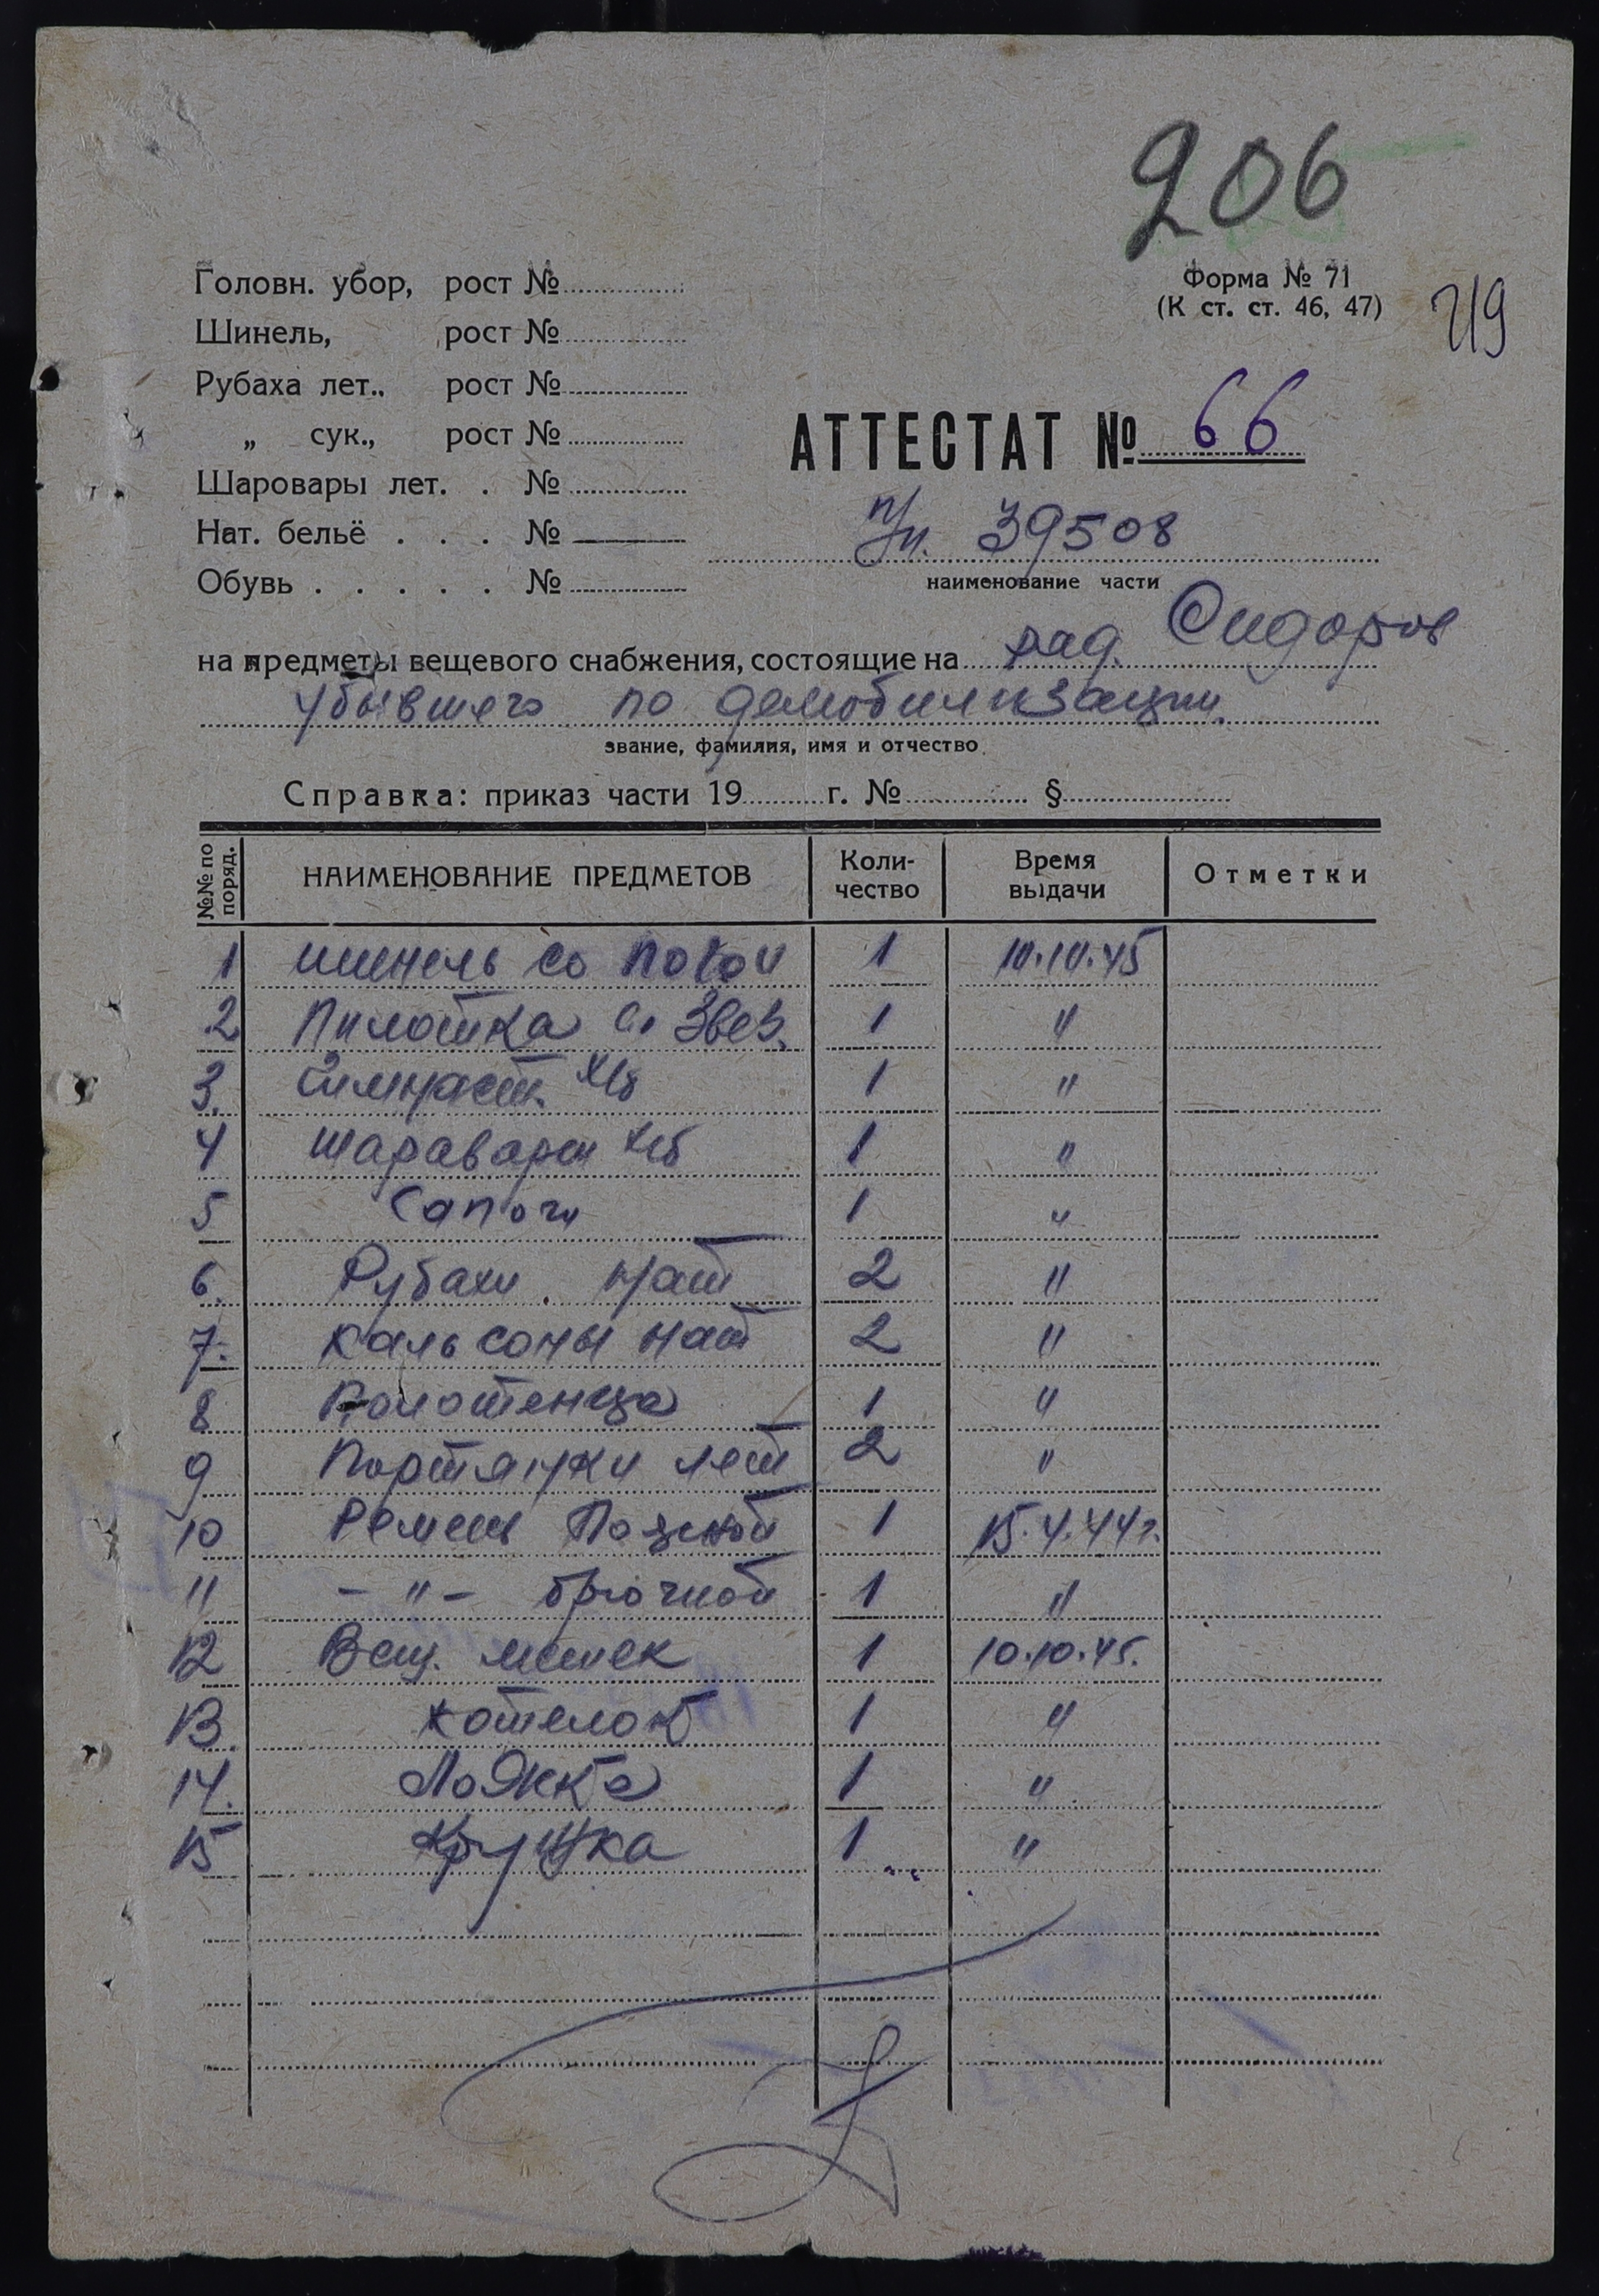 206
Форма № 71
(К ст. ст. 46, 47)
Головн. убор, рост №
Шинель, рост №
Рубаха лет., рост №
„ сук., рост №
Шаровары лет. . №
Нат. бельё . . . №
Обувь . . . . . №
АТТЕСТАТ № 66
п/п. 39508
наименование части
на предметы вещевого снабжения, состоящие на ряд. Сидоров
убывшего по демобилизации.
звание, фамилия, имя и отчество
Справка: приказ части 19 г. № §
№№ по поряд. НАИМЕНОВАНИЕ ПРЕДМЕТОВ Коли-чество Время выдачи Отметки
1 шинель со 1 10.10.45
2 Пилотка со Звез. 1 "
3. Гимнаст. х/б 1 "
4 шаравары х/б 1 "
5 Сапоги 1 "
6. Рубахи нат 2 "
7. Кальсоны нат 2 "
8 Полотенца 1 "
9 Портянки лет 2 "
10 Ремень Поясной 1 15.4.44г.
11 - " - брючной 1 "
12 Вещ. мешек 1 10.10.45.
13. котелок 1 "
14. Ложка 1 "
15 Кружка 1 "